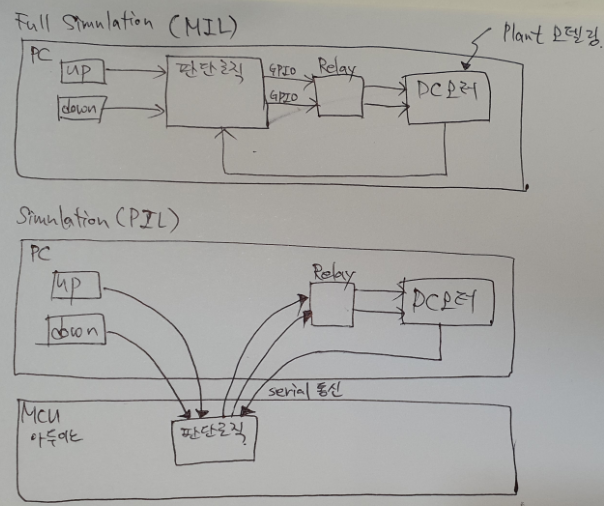 Full Simulation (MIL)
Plant 모델링.
PC
up
down
판단로직
GPIO
GPIO
Relay
DC모터
Simulation (PIL)
PC
up
down
Relay
DC모터
serial 통신
MCU
아두이노
판단로직